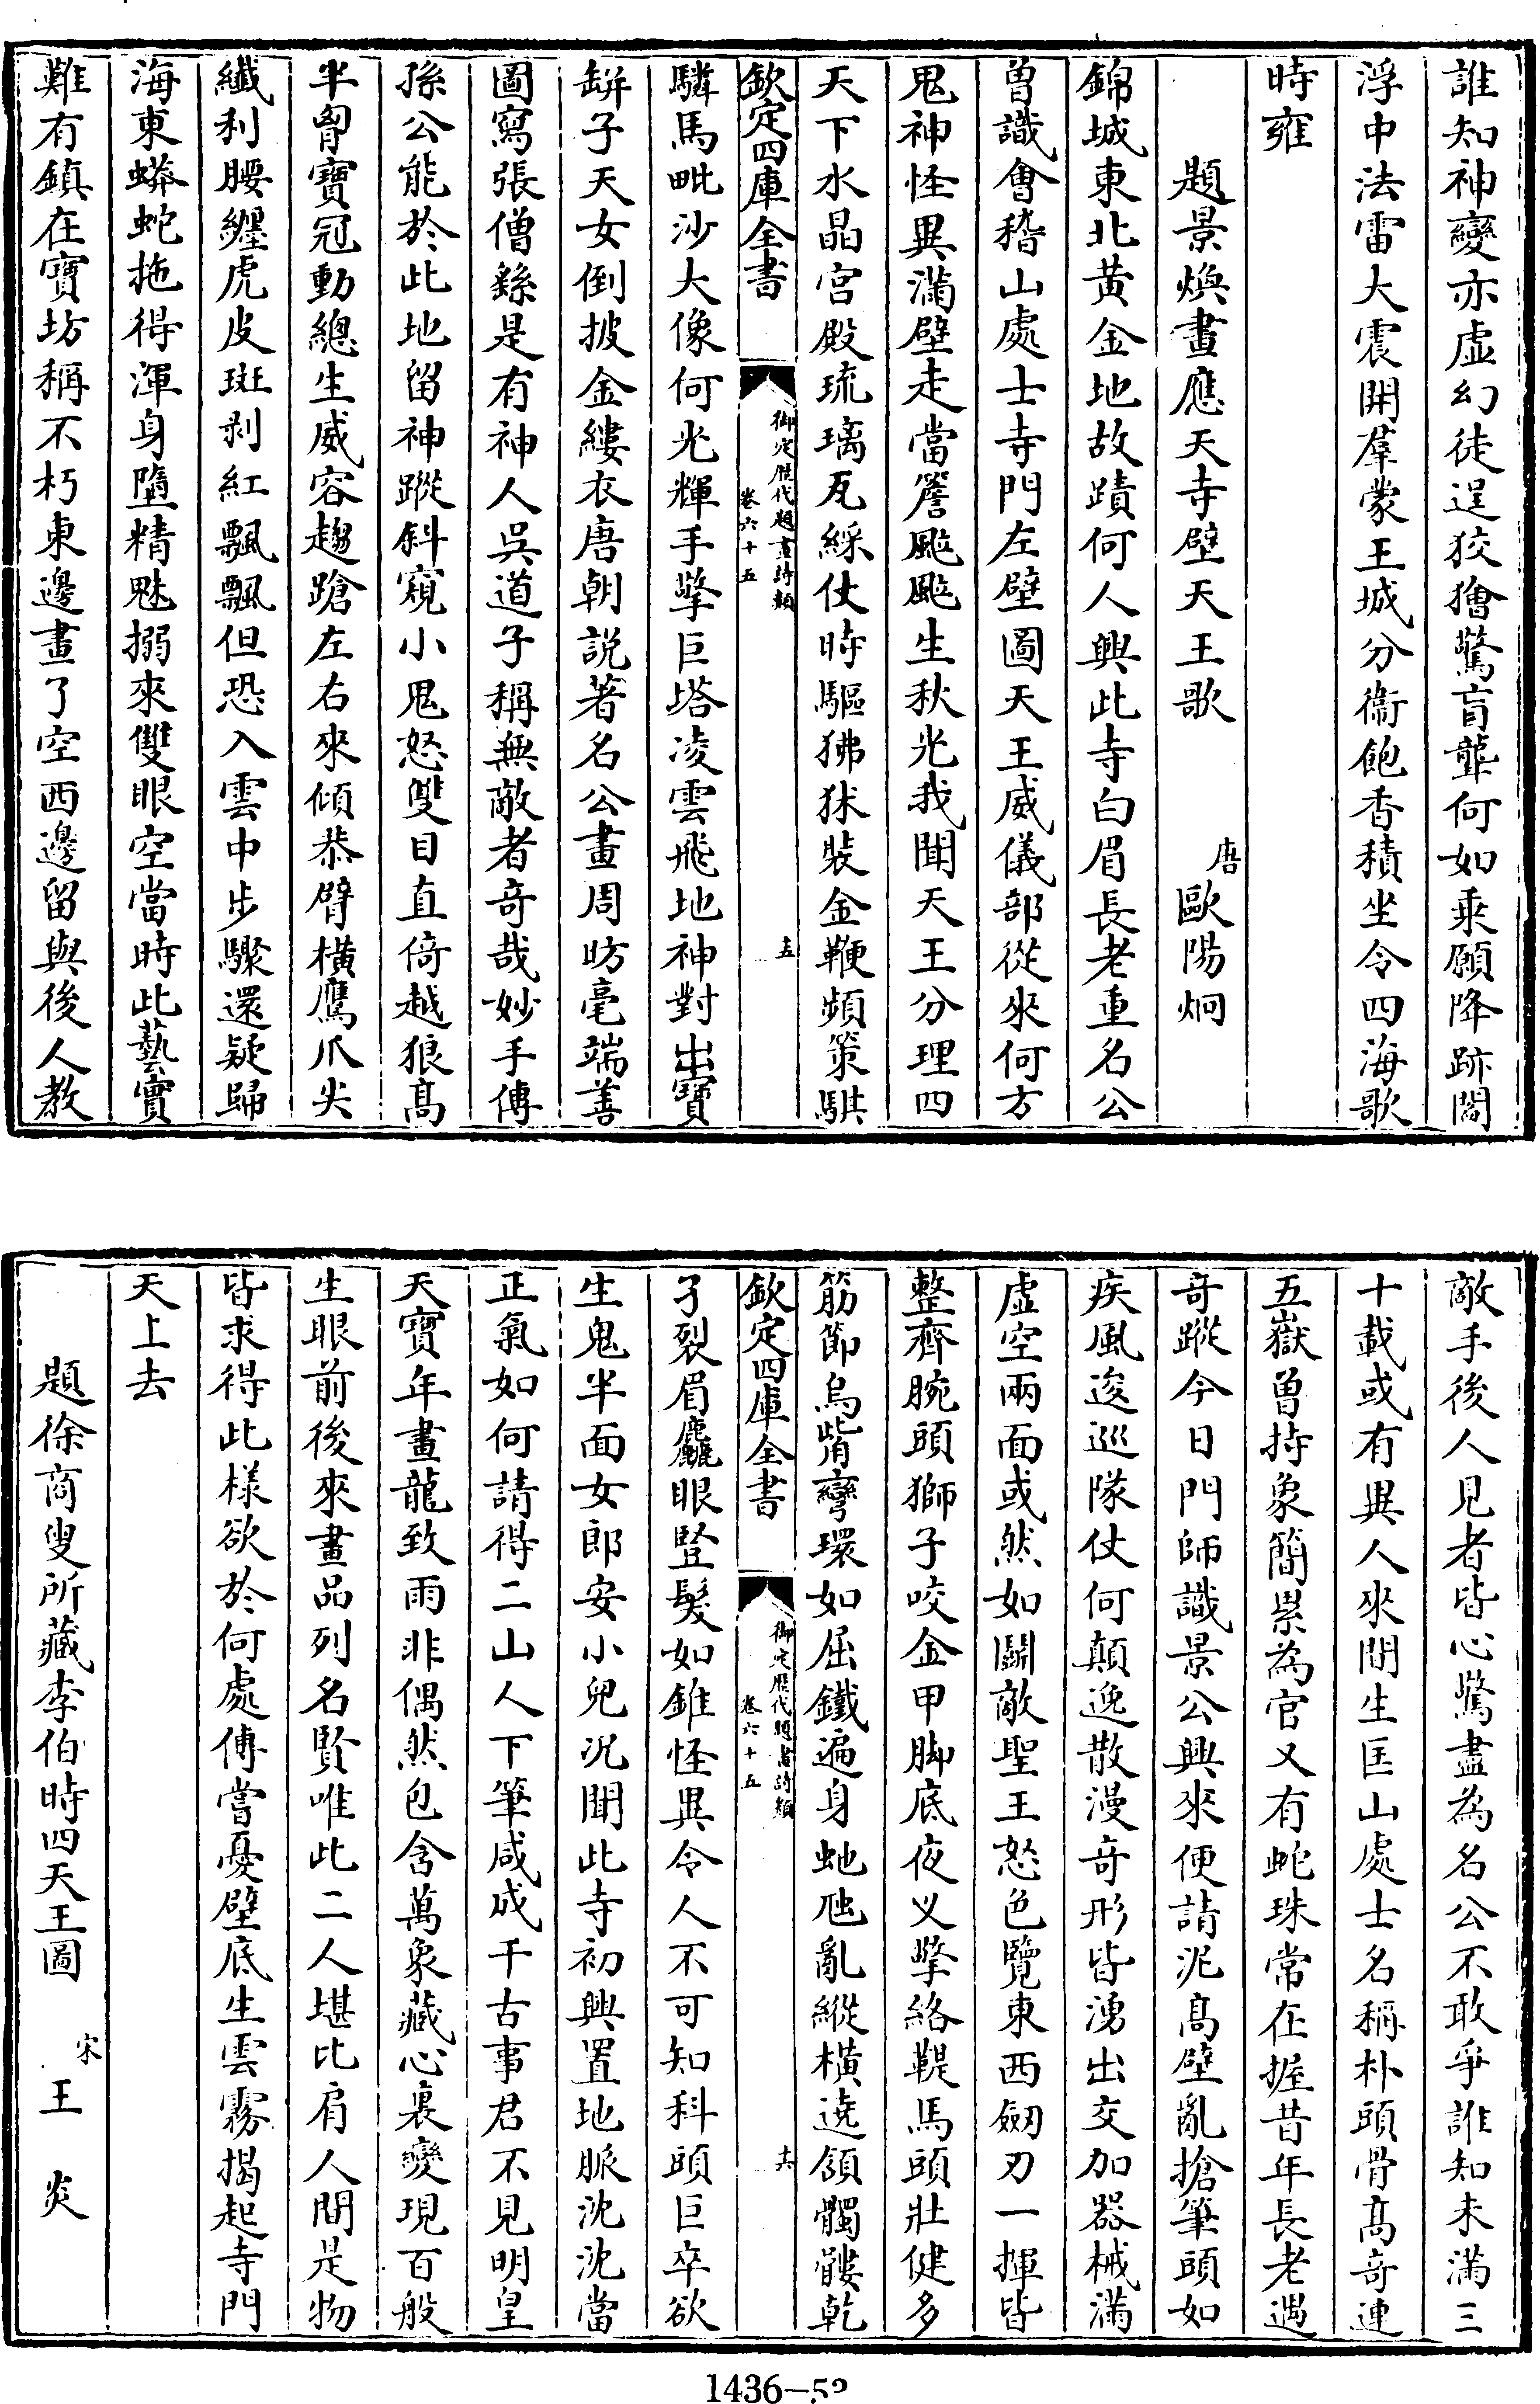 誰知神變亦虚幻徒逞狡獪驚盲聾何如乘願降跡閻
浮中法雷大震開羣蒙王城分衞飽香積坐令四海歌
時雍
題景煥畫應天寺壁天王歌
唐
歐陽炯
錦城東北黄金地故蹟何人興此寺白眉長老重名公
曽識會稽山處士寺門左壁圖天王威儀部從來何方
鬼神怪異滿壁走當簷颭颭生秋光我聞天王分理四
天下水晶宫殿琉璃瓦綵仗時驅狒狖裝金鞭頻策騏
欽定四庫全書
御定歴代題畫詩類
卷六十五
十五
驎馬毗沙大像何光輝手擎巨塔凌雲飛地神對出寶
缾子天女倒披金縷衣唐朝説著名公畫周昉毫端善
圖寫張僧繇是有神人吳道子稱無敵者奇哉妙手傳
孫公能於此地留神蹤斜窺小鬼怒雙目直倚越狼髙
半胷寶冠動總生威容趨蹌左右來傾恭臂橫鷹爪尖
纖利腰纒虎皮斑剥紅飄飄但恐入雲中步驟還疑歸
海東蟒蛇拖得渾身墮精魅搦來雙眼空當時此藝實
難有鎮在寳坊稱不朽東邊畫了空西邊留與後人教
敵手後人見者皆心驚盡為名公不敢爭誰知未滿三
十載或有異人來間生匡山處士名稱朴頭骨髙奇連
五嶽曽持象簡累為官又有蛇珠常在握昔年長老遇
奇蹤今日門師識景公興來便請泥髙壁亂搶筆頭如
疾風逡巡隊仗何顛逸散漫奇形皆湧出交加器械滿
虚空兩面或然如鬭敵聖王怒色覽東西劒刃一揮皆
整齊腕頭獅子咬金甲脚底夜义擎絡鞮馬頭壯健多
筋節烏觜彎環如屈鐵遍身虵虺亂縱橫遶頷髑髏乾
欽定四庫全書
御定歴代題畫詩類
卷六十五
十六
孑裂眉麤眼豎髮如錐怪異令人不可知科頭巨卒欲
生鬼半面女郎安小兒況聞此寺初興置地脈沈沈當
正氣如何請得二山人下筆咸成千古事君不見明皇
天寳年畫龍致雨非偶然包含萬象藏心裏變現百般
生眼前後來畫品列名賢唯此二人堪比肩人間是物
皆求得此様欲於何處傳嘗憂壁底生雲霧揭起寺門
天上去
題徐商叟所藏李伯時四天王圖
宋
王炎